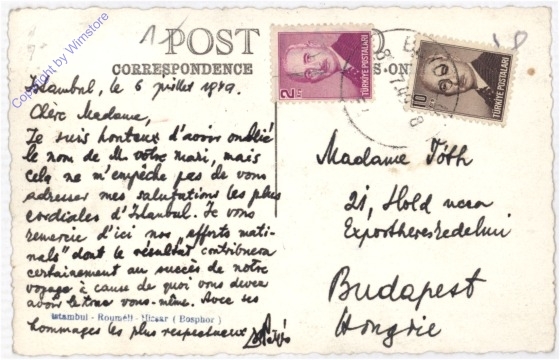 Copyright by Wimstore
POST
CORRESPONDENCE
2
TÜRKİYE POSTALARI
10
TÜRKİYE POSTALARI
Istanbul, le 6 juillet 1949.
Chère Madame,
Je suis honteux d'avoir oublié
le nom de M. votre mari, mais
cela ne m'empêche pas de vous
adresser mes salutations les plus
cordiales d'Istanbul. Je vous
remercie d'ici nos "efforts mati-
nals" dont le résultat contribuera
certainement au succès de notre
voyage à cause de quoi vous devez
avoir le trac vous-même. Avec ses
Istanbul - Rouméli - Hissar ( Bosphor )
hommages les plus respectueux
Madame Tóth
21, Hold ucca
Budapest
Hongrie